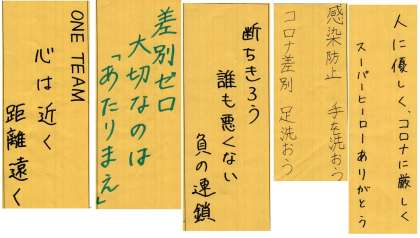 ONE TEAM
心は近く
距離遠く
差別ゼロ
大切なのは
「あたりまえ」
断ちきろう
誰も悪くない
負の連鎖
感染防止 手を洗おう
コロナ差別 足洗おう
人に優しく、コロナに厳しく
スーパーヒーローありがとう